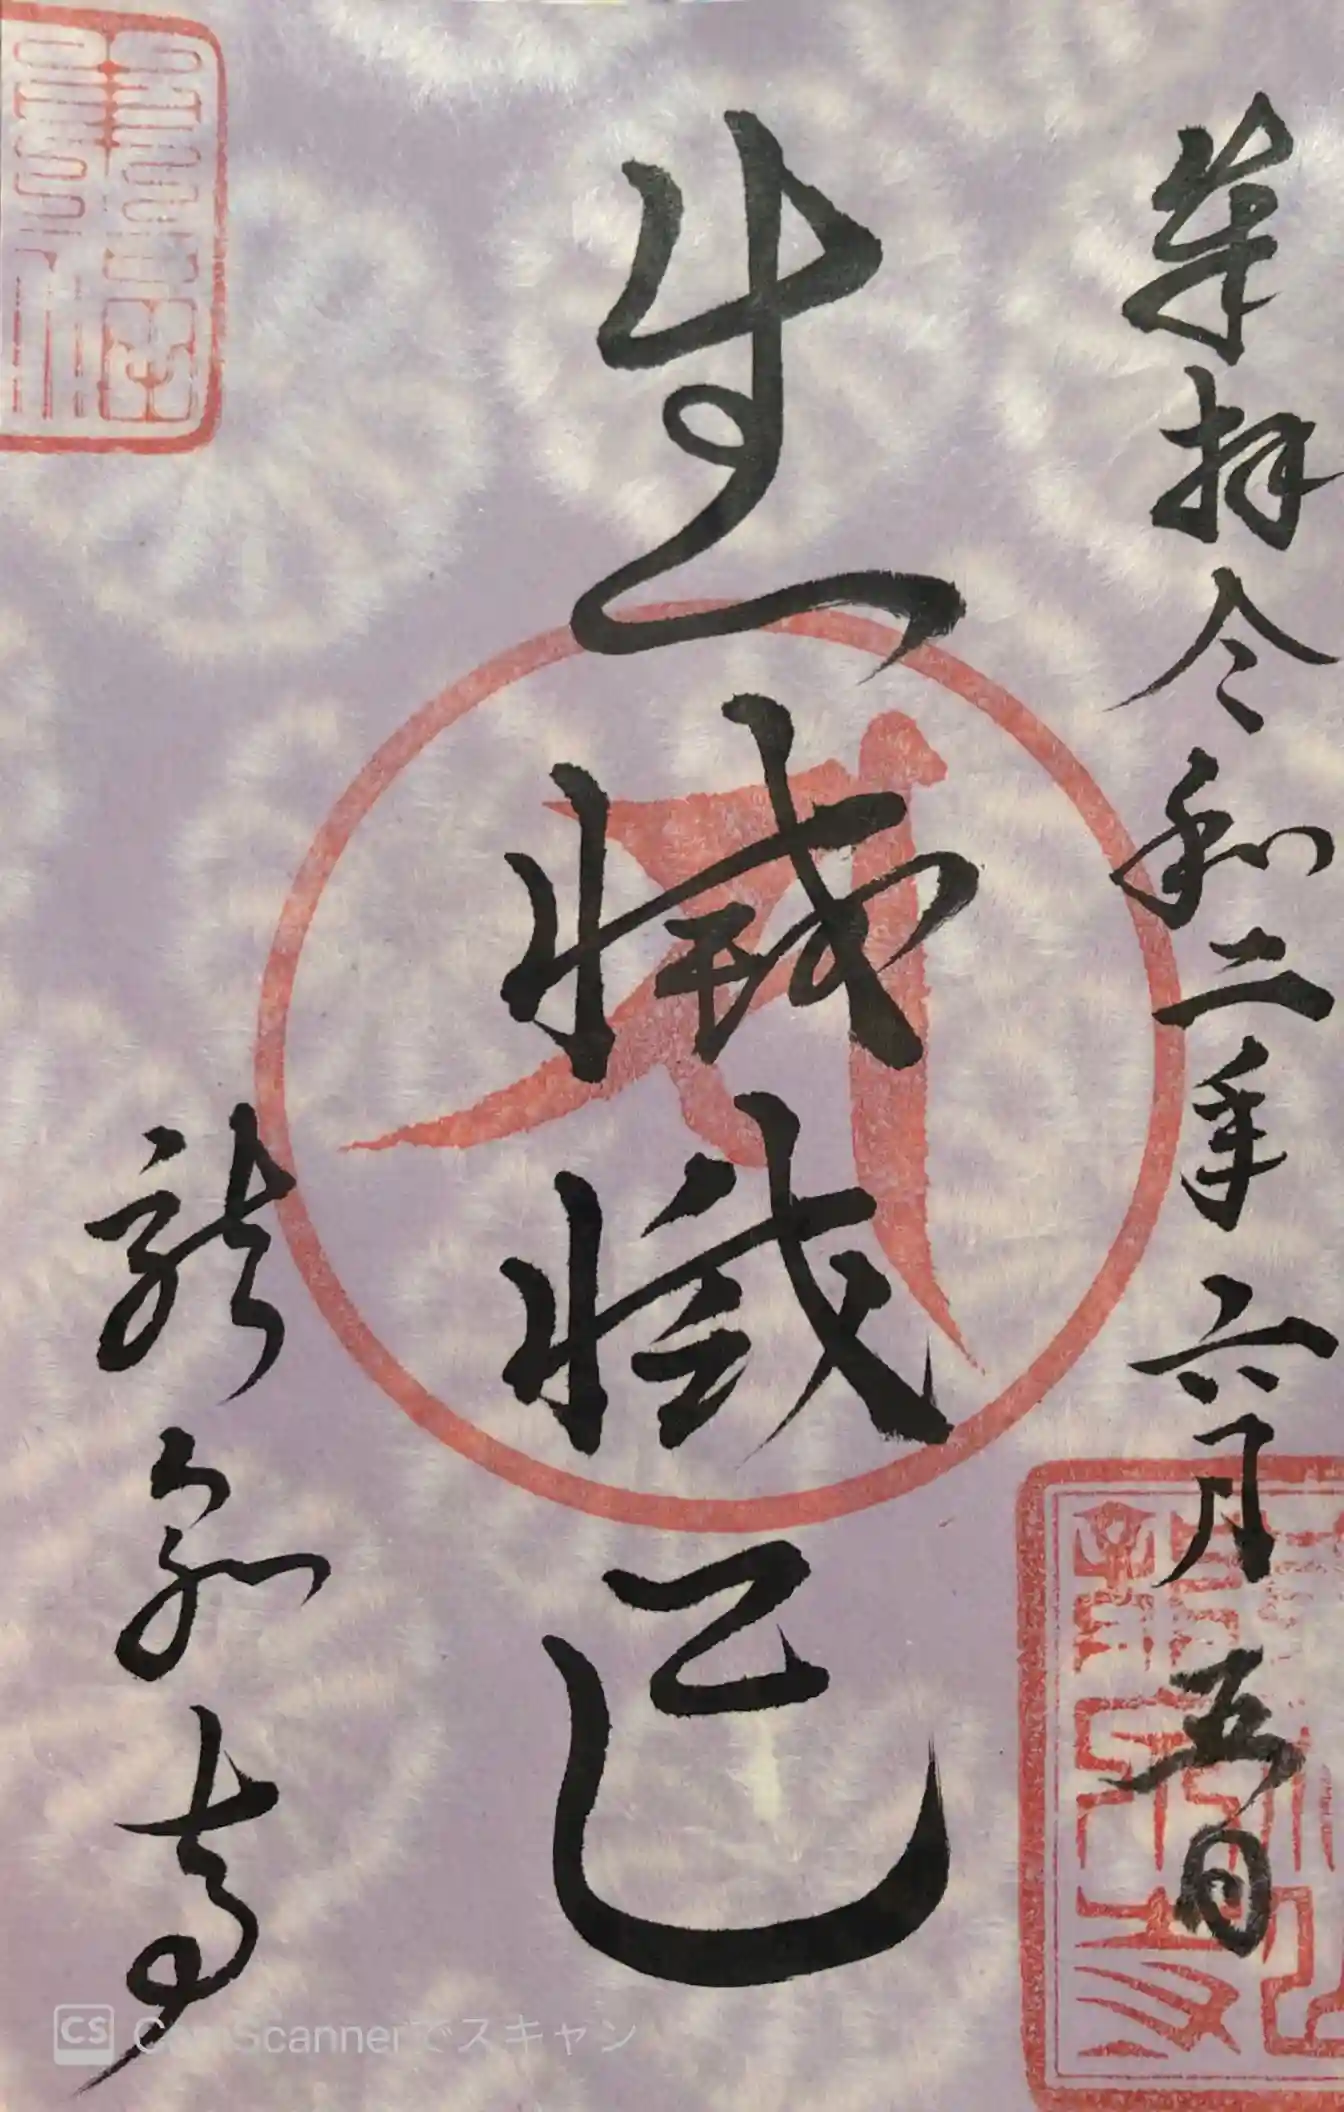 奉拝令和二年六月五日
生滅滅已
龍象寺
CS CamScannerでスキャン